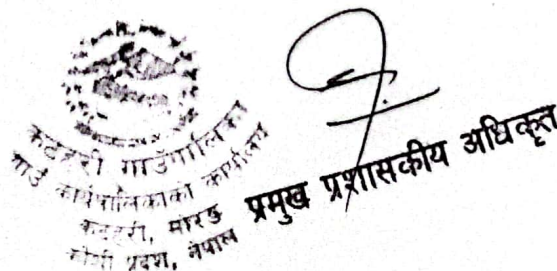 कटहरी गाउँपालिका
गाउँ कार्यपालिकाको कार्यालय
कटहरी, मोरङ
कोशी प्रदेश, नेपाल
प्रमुख प्रशासकीय अधिकृत